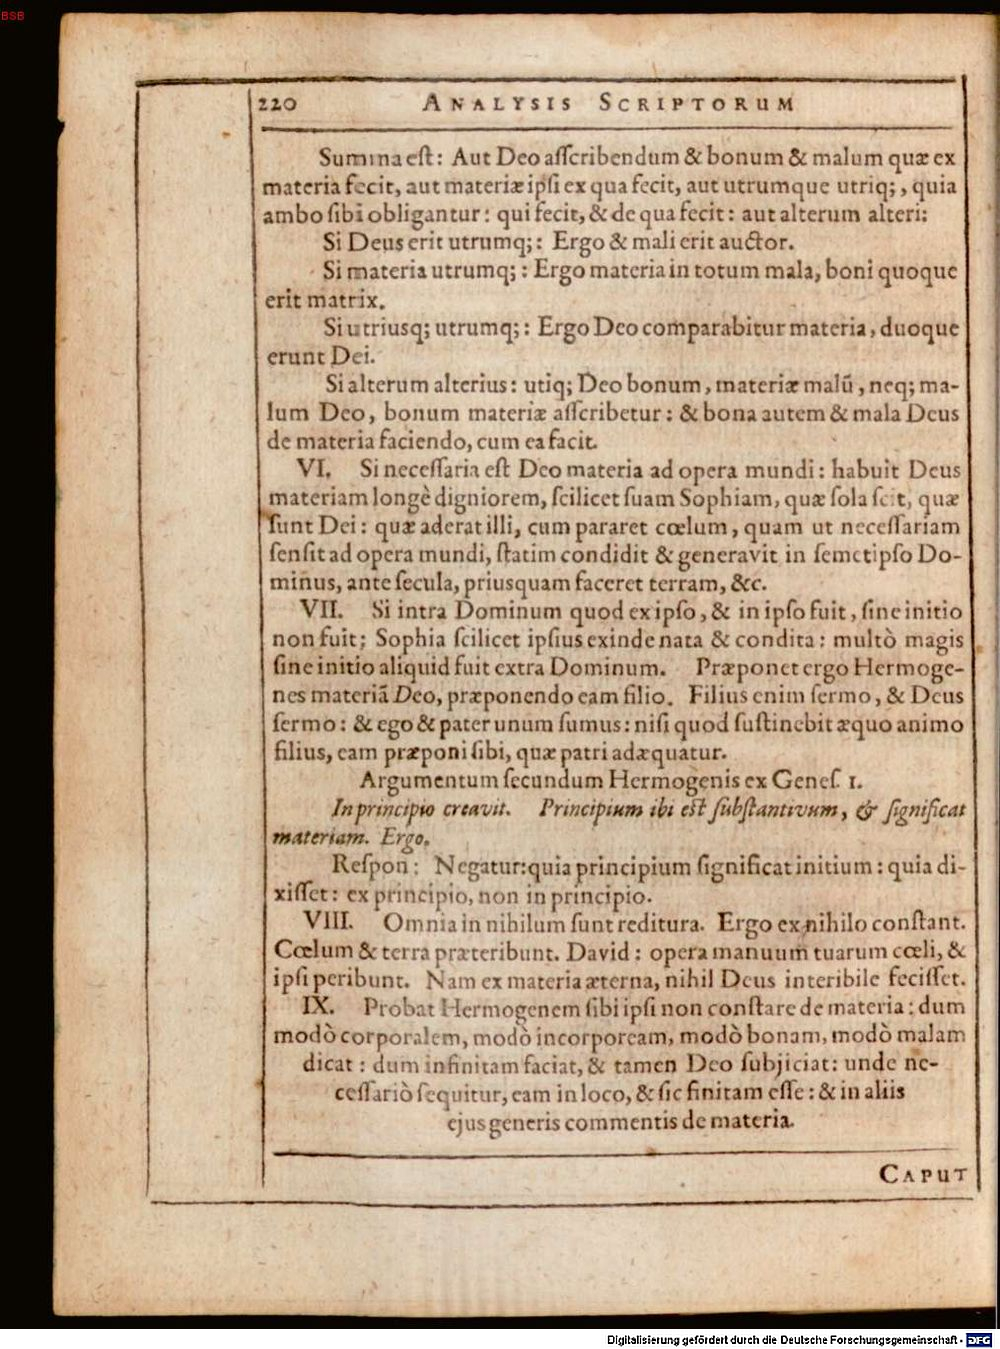 BSB
220 ANALYSIS SCRIPTORUM
Summa eſt: Aut Deo aſſcribendum & bonum & malum quæ ex
materia fecit, aut materiæ ipſi ex qua fecit, aut utrumque utriq;, quia
ambo ſibi obligantur: qui fecit, & de qua fecit: aut alterum alteri:
Si Deus erit utrumq;: Ergo & mali erit auctor.
Si materia utrumq;: Ergo materia in totum mala, boni quoque
erit matrix.
Si utriusq; utrumq;: Ergo Deo comparabitur materia, duoque
erunt Dei.
Si alterum alterius: utiq; Deo bonum, materiæ malū, neq; ma-
lum Deo, bonum materiæ aſſcribetur: & bona autem & mala Deus
de materia faciendo, cum ea facit.
VI. Si neceſſaria eſt Deo materia ad opera mundi: habuit Deus
materiam longè digniorem, ſcilicet ſuam Sophiam, quæ ſola ſcit, quæ
ſunt Dei: quæ aderat illi, cum pararet cœlum, quam ut neceſſariam
ſenſit ad opera mundi, ſtatim condidit & generavit in ſemetipſo Do-
minus, ante ſecula, priusquam faceret terram, &c.
VII. Si intra Dominum quod ex ipſo, & in ipſo fuit, ſine initio
non fuit; Sophia ſcilicet ipſius exinde nata & condita: multò magis
ſine initio aliquid fuit extra Dominum. Præponet ergo Hermoge-
nes materiã Deo, præponendo eam filio. Filius enim ſermo, & Deus
ſermo: & ego & pater unum ſumus: niſi quod ſuſtinebit æquo animo
filius, eam præponi ſibi, quæ patri adæquatur.
Argumentum ſecundum Hermogenis ex Geneſ. 1.
In principio creavit. Principium ibi eſt ſubſtantivum, & ſignificat
materiam. Ergo.
Reſpon: Negatur: quia principium ſignificat initium: quia di-
xiſſet: ex principio, non in principio.
VIII. Omnia in nihilum ſunt reditura. Ergo ex nihilo conſtant.
Cœlum & terra præteribunt. David: opera manuum tuarum cœli, &
ipſi peribunt. Nam ex materia æterna, nihil Deus interibile feciſſet.
IX. Probat Hermogenem ſibi ipſi non conſtare de materia: dum
modò corporalem, modò incorpoream, modò bonam, modò malam
dicat: dum infinitam faciat, & tamen Deo ſubjiciat: unde ne-
ceſſariò ſequitur, eam in loco, & ſic finitam eſſe: & in aliis
ejus generis commentis de materia.
CAPUT
Digitalisierung gefördert durch die Deutsche Forschungsgemeinschaft - DFG